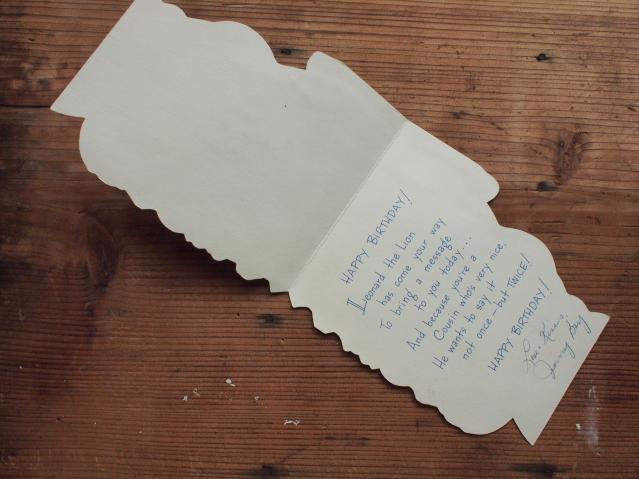 HAPPY BIRTHDAY!
Leonard the Lion
has come your way
To bring a message
to you today...
And because you're a
Cousin who's very nice,
He wants to say it
not once - but TWICE!
HAPPY BIRTHDAY!